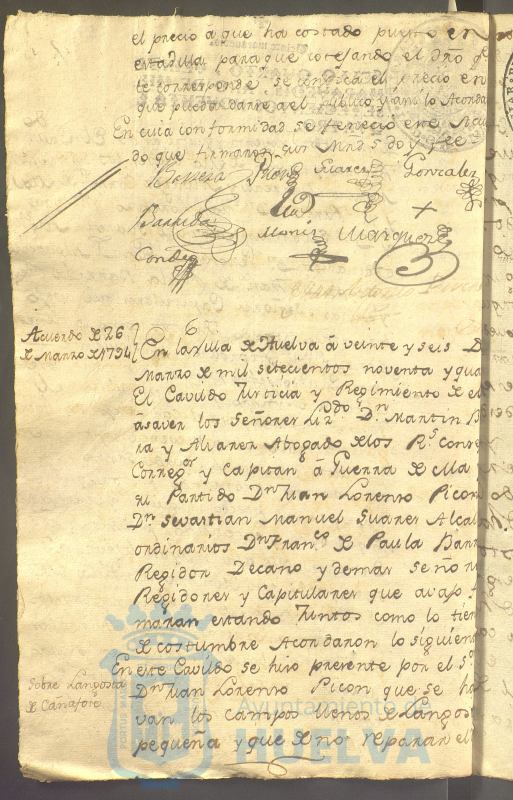 el precio á que ha costado puesto en
esta villa para que cotejando el dño q
le corresponde se
que pueda darse a el publico, y asi lo Acorda
En cuia conformidad se fenecio este Acu
do que firmaron sus Mrds doy fee
Barrera Picon Suarez Gonzalez
Barreda Moniz Marquez
Conde
Acuerdo de 26
de Marzo de 1794
En la villa de Huelva á veinte y seis D
Marzo de mil setecientos noventa y qua
El Cavildo Justicia y Regimiento de el
ásaver los Señores Lizdo. Dn. Martin B
ra y Alvarez Abogado de los Rs. conse
Corregor. y Capitan á Guerra de ella
su Partido Dn. Juan Lorenzo Picon
Dn. Sevastian Manuel Suarez Alcal
ordinarios Dn. Franco. de Paula Barr
Regidor Decano y demas Seño re
Regidores y Capitulares que avajo f
maran estando Juntos como lo tien
de costumbre Acordaron lo siguien
Sobre Langosta
de Canafote
En este Cavildo se hizo presente por el Sor.
Dn. Juan Lorenzo Picon que se ha
van los campos llenos de Langos
pequeña y que de no reparar el
Ayuntamiento de
HUELVA